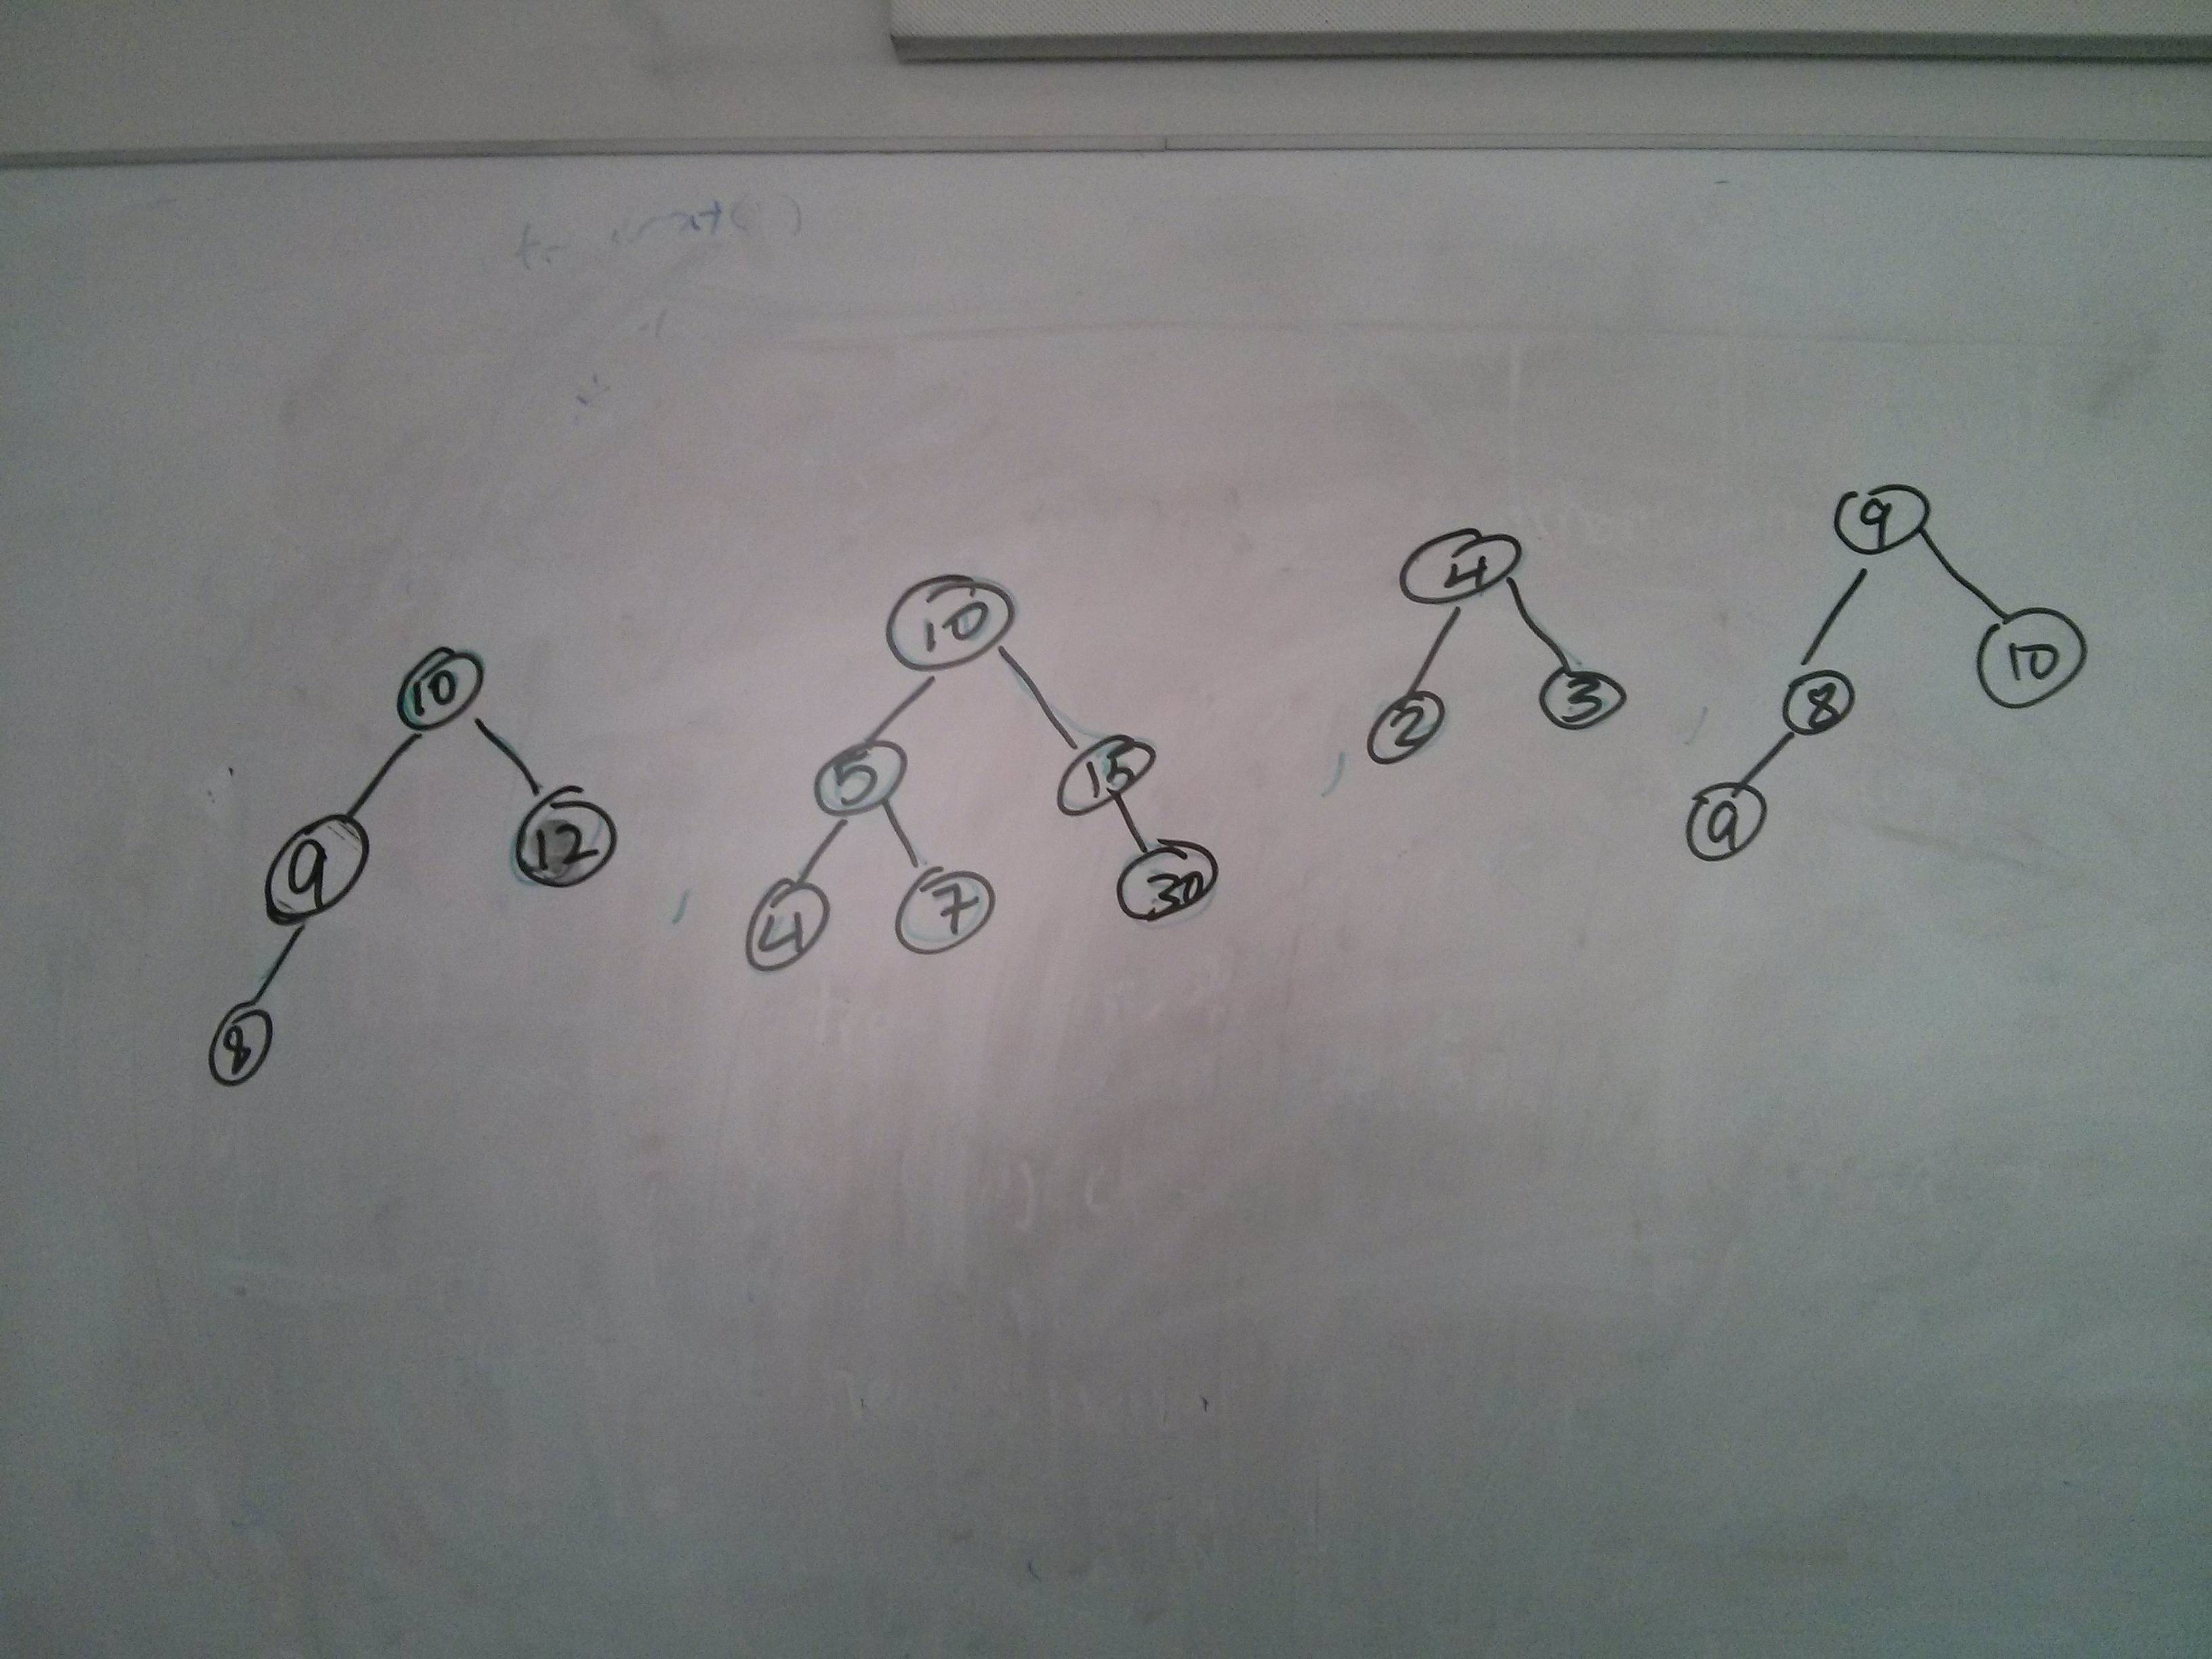 10
9 12
8
,
10
5 15
4 7 30
,
4
2 3
,
9
8 10
9